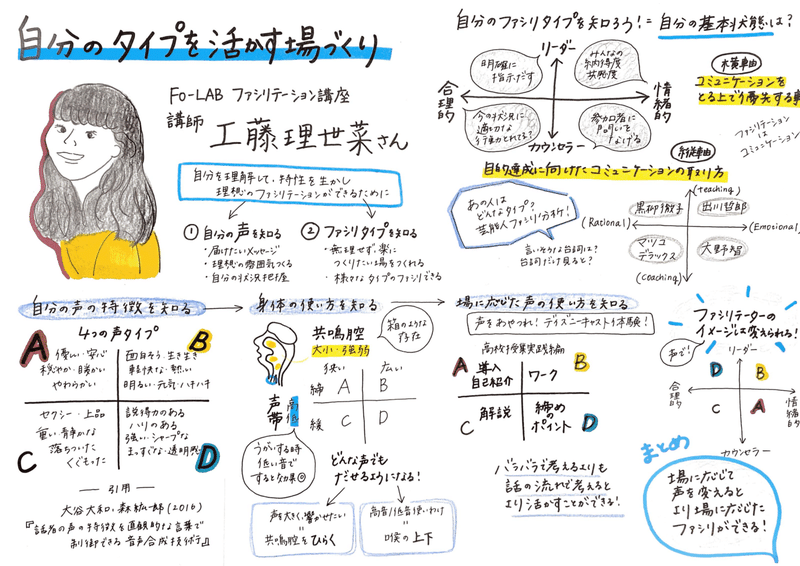 自分のタイプを活かす場づくり
FO-LAB ファシリテーション講座
講師 工藤理世菜さん
自分を理解して、特性を生かし
理想のファシリテーションができるために
① 自分の声を知る
・届けたいメッセージ
・理想の雰囲気つくる
・自分の状況把握
② ファシリタイプを知る
・無理せず、楽に
つくりたい場をつくれる
・様々なタイプのファシリできる
自分のファシリタイプを知ろう!=自分の基本状態は?
リーダー
明確に
指示だす
みんなの
納得度
合理的
情緒的
今の状況に
適切な
行動とれてる?
参加者に
つなげる
カウンセラー
横軸
コミュニケーションを
とる上で優先する事
ファシリテーション
は
コミュニケーション
縦軸
目的達成に向けたコミュニケーションの取り方
あの人は
どんなタイプ?
芸能人ファシリ分析!
言いそうな台詞は?
台詞だけ見ると?
(teaching)
黒柳徹子
出川哲郎
(Rational)
(Emotional)
マツコ
デラックス
大野智
(coaching)
自分の声の特徴を知る
4つの声タイプ
A
優しい・安心
穏やか・暖かい
やわらかい
B
面白そう・生き生き
軽快な・熱い
明るい・元気・ハキハキ
C
セクシー・上品
重い・静かな
落ちついた
くぐもった
D
説得力のある
ハリのある
強い・シャープな
まっすぐな・透明感
引用
大谷大和・森紘一郎(2016)
『話者の声の特徴を直感的な言葉で
制御できる音声合成技術』
身体の使い方を知る
共鳴腔
大小・強弱
箱のような
存在
狭い
広い
締
A
B
緩
C
D
声帯
高低
うがいする時
低い音で
すると効果◎
どんな声でも
だせるようになる!
声を大きく、響かせたい
=
共鳴腔をひらく
高音/低音使いわけ
=
喉の上下
場に応じた声の使い方を知る
声をあやつれ!ディズニーキャスト体験!
高校授業実践編
A
導入
自己紹介
ワーク
B
C
解説
締めの
ポイント
D
バラバラで考えるよりも
話の流れで考えると
より活かすことができる!
ファシリテーターの
イメージは変えられる!
声で!
リーダー
D
B
合理的
情緒的
C
A
カウンセラー
まとめ
場に応じて
声を変えると
より場に応じた
ファシリができる!